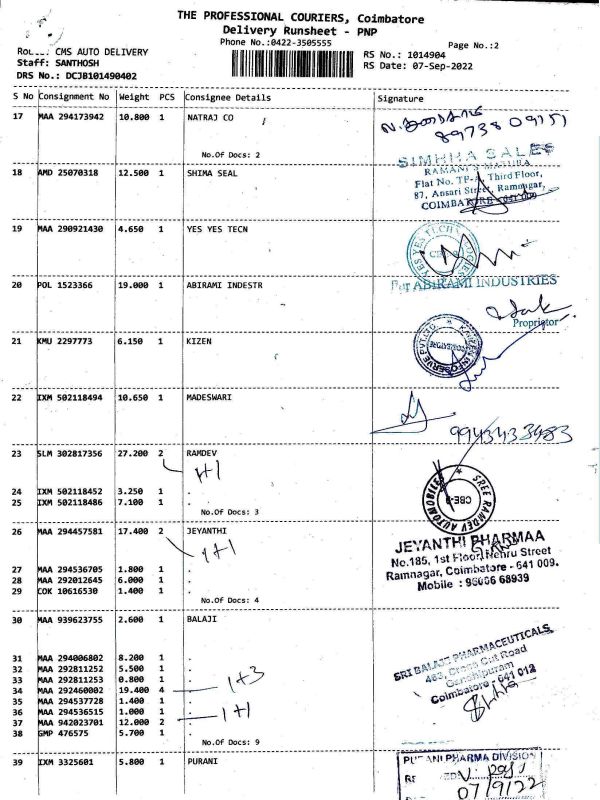 THE PROFESSIONAL COURIERS, Coimbatore
Delivery Runsheet - PNP
Phone No.:0422-3505555
Page No.:2
CMS AUTO DELIVERY
RS No.: 1014904
Staff: SANTHOSH
RS Date: 07-Sep-2022
DRS No.: DCJB101490402
S No Consignment No Weight PCS Consignee Details Signature
17 MAA 294173942 10.800 1 NATRAJ CO
89738 09151
No.Of Docs: 2
SIMHHA SALES
18 AMD 25070318 12.500 1 SHIMA SEAL
Flat No. TP-A, Third Floor,
87, Ansari Street, Ramnagar,
COIMBATORE - 641 009
19 MAA 290921430 4.650 1 YES YES TECN
YES YES TECH
20 POL 1523366 19.000 1 ABIRAMI INDESTR
For ABIRAMI INDUSTRIES
Proprietor
21 KMU 2297773 6.150 1 KIZEN
22 IXM 502118494 10.650 1 MADESWARI
9943433483
23 SLM 302817356 27.200 2 RAMDEV
1+1
24 IXM 502118452 3.250 1 .
25 IXM 502118486 7.100 1 .
No.Of Docs: 3
SREE RAMDEV AUTOMOBILES
CBE-9
26 MAA 294457581 17.400 2 JEYANTHI
1+1
JEYANTHI PHARMAA
No.185, 1st Floor, Nehru Street
Ramnagar, Coimbatore - 641 009.
Mobile : 96666 68939
27 MAA 294536705 1.800 1 .
28 MAA 292012645 6.000 1 .
29 COK 10616530 1.400 1 .
No.Of Docs: 4
30 MAA 939623755 2.600 1 BALAJI
31 MAA 294006802 8.200 1 .
32 MAA 292811252 5.500 1 .
33 MAA 292811253 0.800 1 .
34 MAA 292460002 19.400 4 .
1+3
35 MAA 294537728 1.400 1 .
36 MAA 294536515 1.000 1 .
37 MAA 942023701 12.000 2 .
1+1
38 GMP 476575 5.700 1 .
No.Of Docs: 9
SRI BALAJI PHARMACEUTICALS
463, Cross Cut Road
Gandhipuram
Coimbatore - 641 012
39 IXM 3325601 5.800 1 PURANI
PURANI PHARMA DIVISION
07/9/22